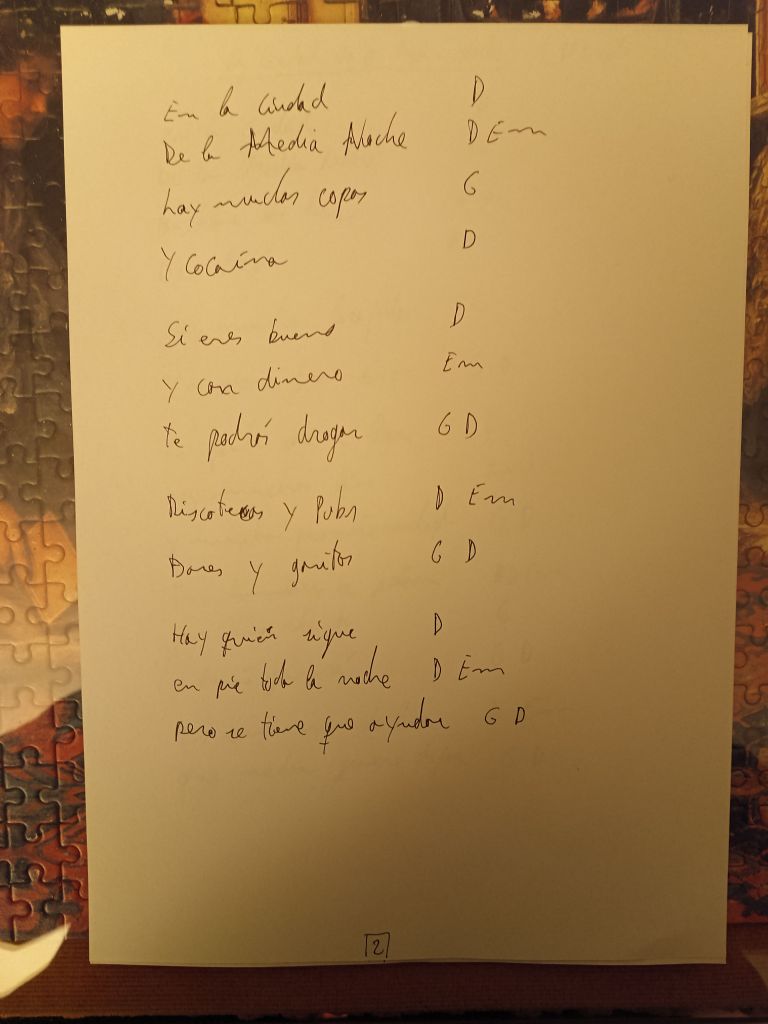 En la ciudad D
De la Media Noche D Em
hay muchas copas G
Y cocaína D
Si eres bueno D
y con dinero Em
te podrás drogar G D
Discotecas y Pubs D Em
Bares y garitos G D
Hay quién sigue D
en pie toda la noche D Em
pero se tiene que ayudar G D
2